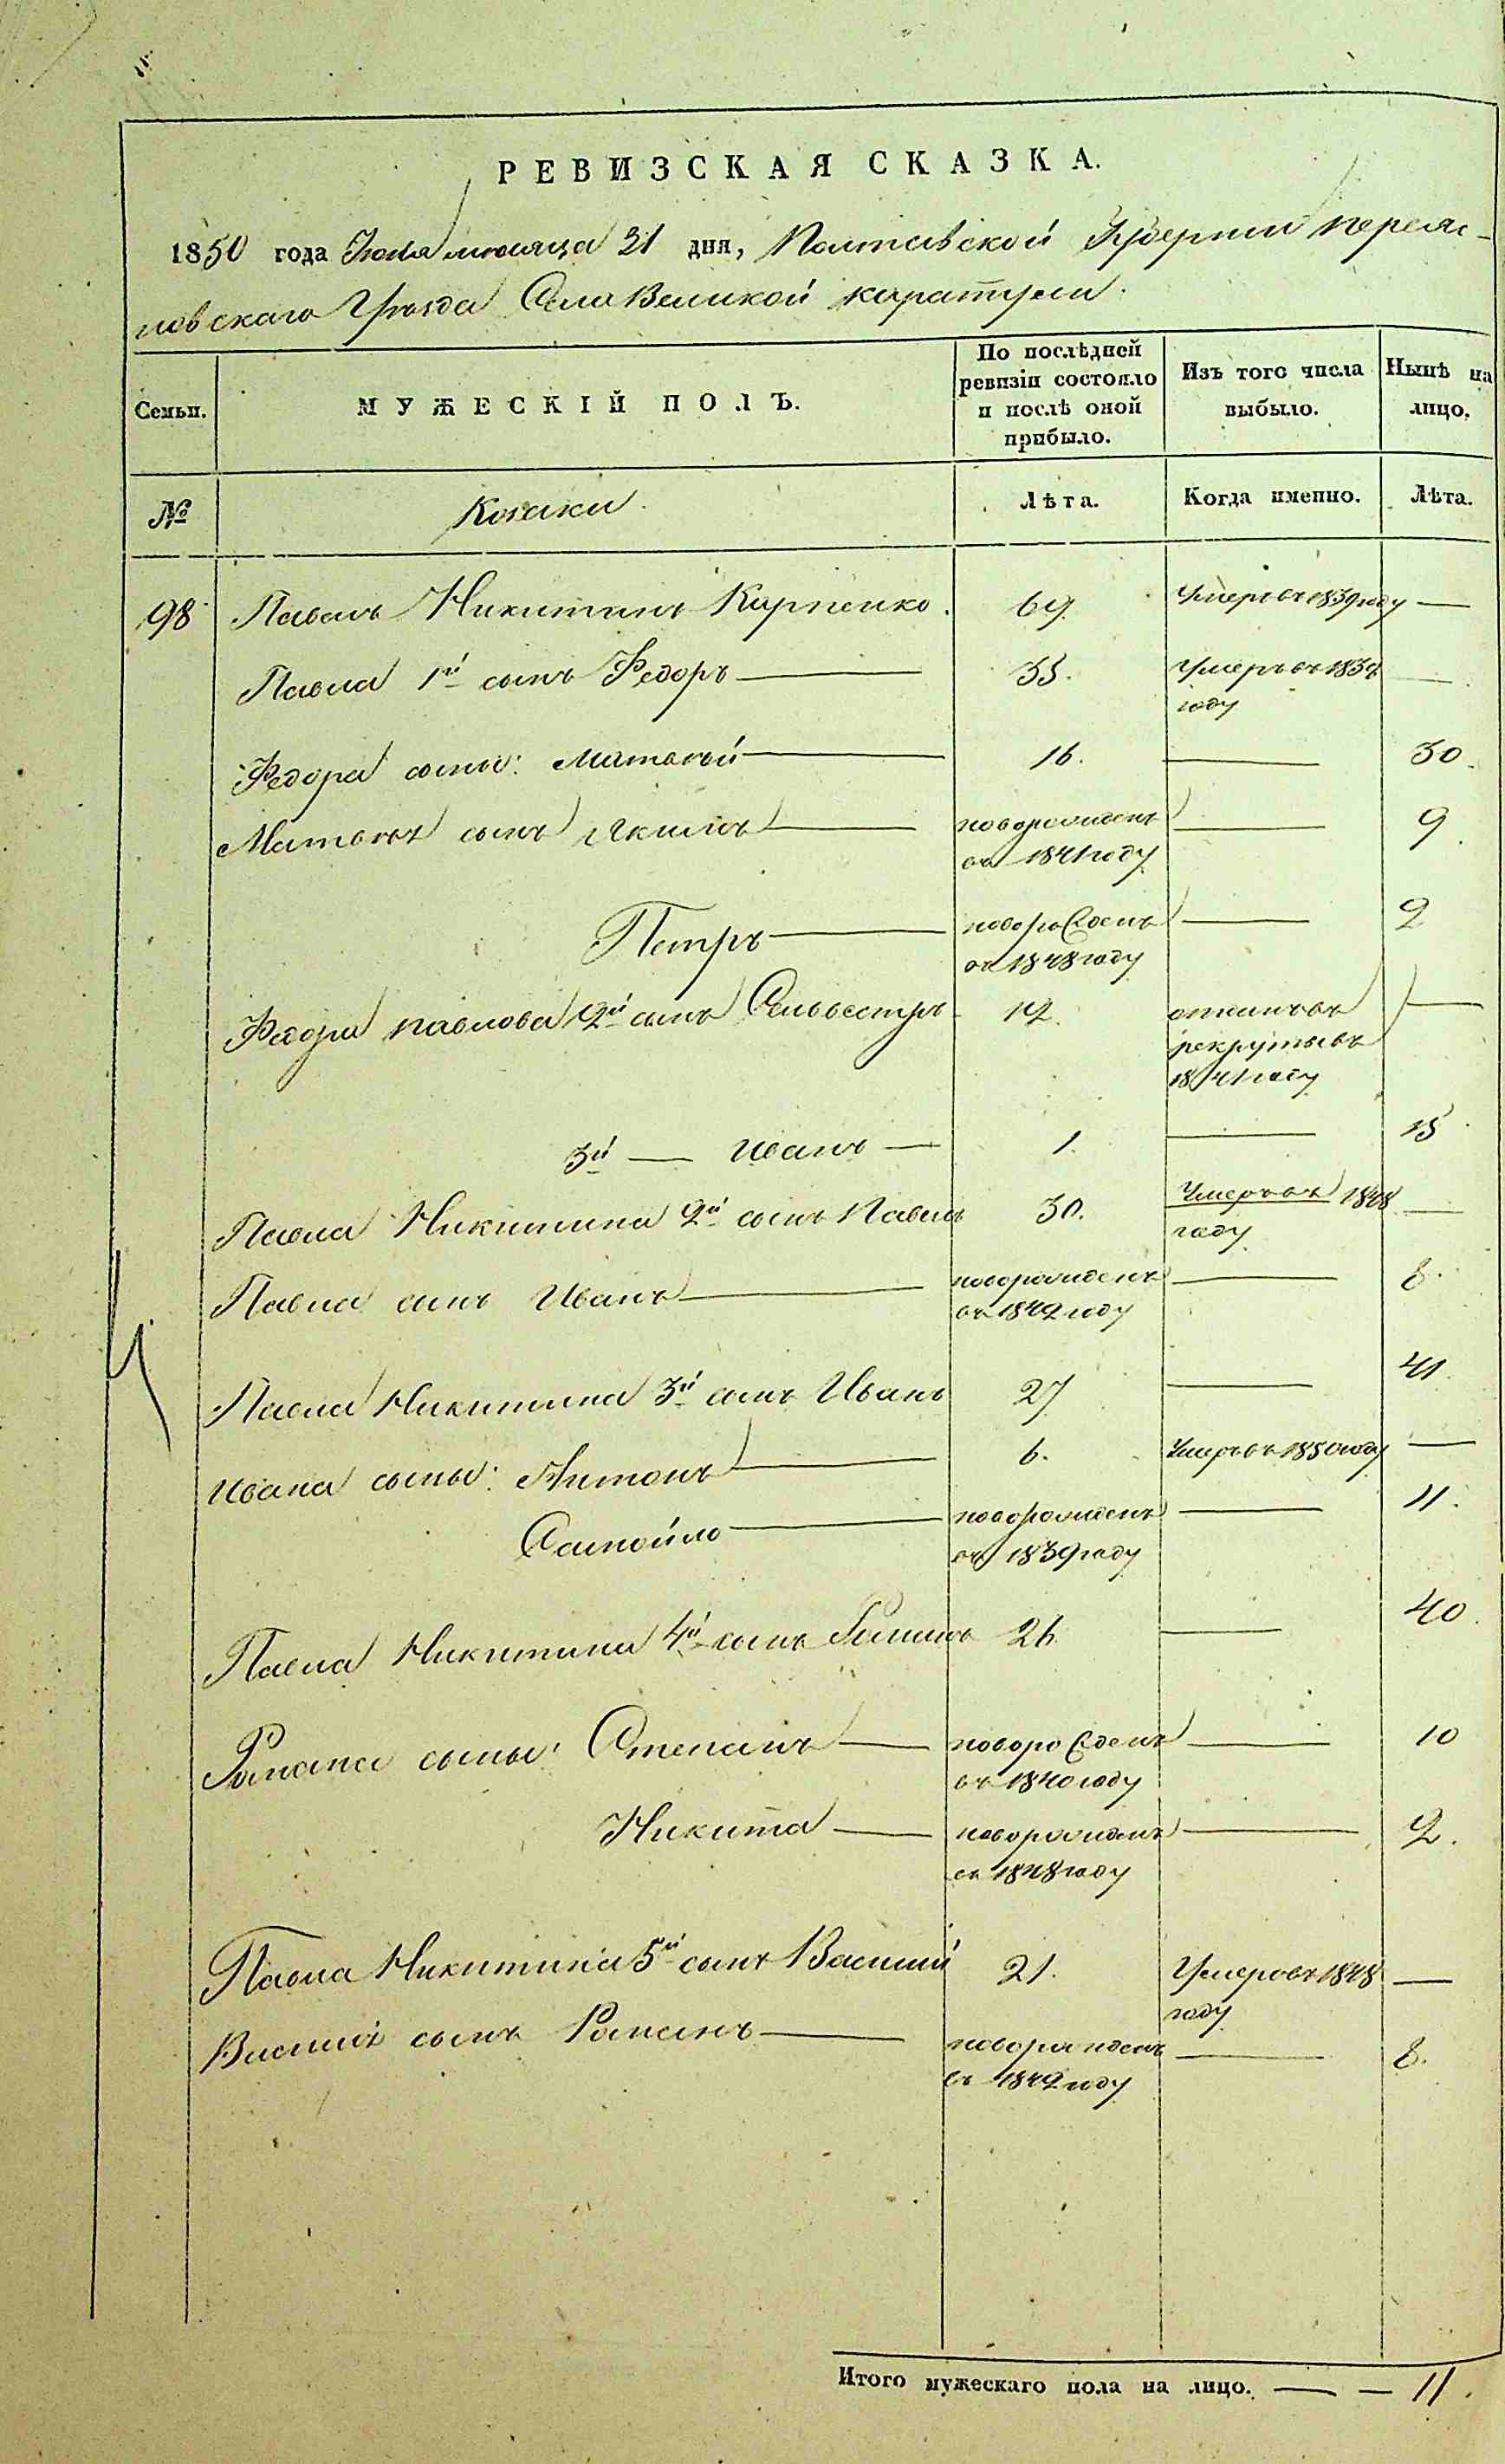 РЕВИЗСКАЯ СКАЗКА.
1850 года Июля месяца 31 дня, Полтавской Губернии Переяс-
лавскаго Уезда Села Великой Каратули.
Семьи.
МУЖЕСКІЙ ПОЛЪ.
По послѣдней ревизіи состояло и послѣ оной прибыло.
Изъ того числа выбыло.
Нынѣ на лицо.
№ Козаки. Лѣта. Когда именно. Лѣта.
98 Павелъ Никитинъ Карпенко. 69. Умеръ въ 1839 году —
Павла 1й сынъ Федоръ — 35. Умеръ въ 1839 —
году
Федора сыны: Матвей — 16. — 30.
Матвея сынъ Яким — новорожденъ — 9.
въ 1841 году
Петръ — новорожденъ — 2
въ 1848 году
Федора Павлова 2й сынъ Сельвестръ 12. отданъ въ —
рекруты въ
1841 году
3й — Иванъ — 1. — 15
Павла Никитина 2й сынъ Павелъ 30. Умеръ въ 1848 —
году
Павла сынъ Иванъ — новорожденъ — 8.
въ 1842 году
Павла Никитина 3й сынъ Иванъ 27 — 41.
Ивана сыны: Антонъ — 6. Умеръ въ 1850 году —
Самойло — новорожденъ — 11.
въ 1839 году
Павла Никитина 4й сынъ Романъ 26 — 40.
Романа сыны: Степанъ — новорожденъ — 10
въ 1840 году
Никита — новорожденъ — 2.
въ 1848 году
Павла Никитина 5й сынъ Василий 21. Умеръ въ 1848 —
году
Василия сынъ Романъ — новорожденъ — 8.
въ 1842 году
Итого мужескаго пола на лицо. — — 11.